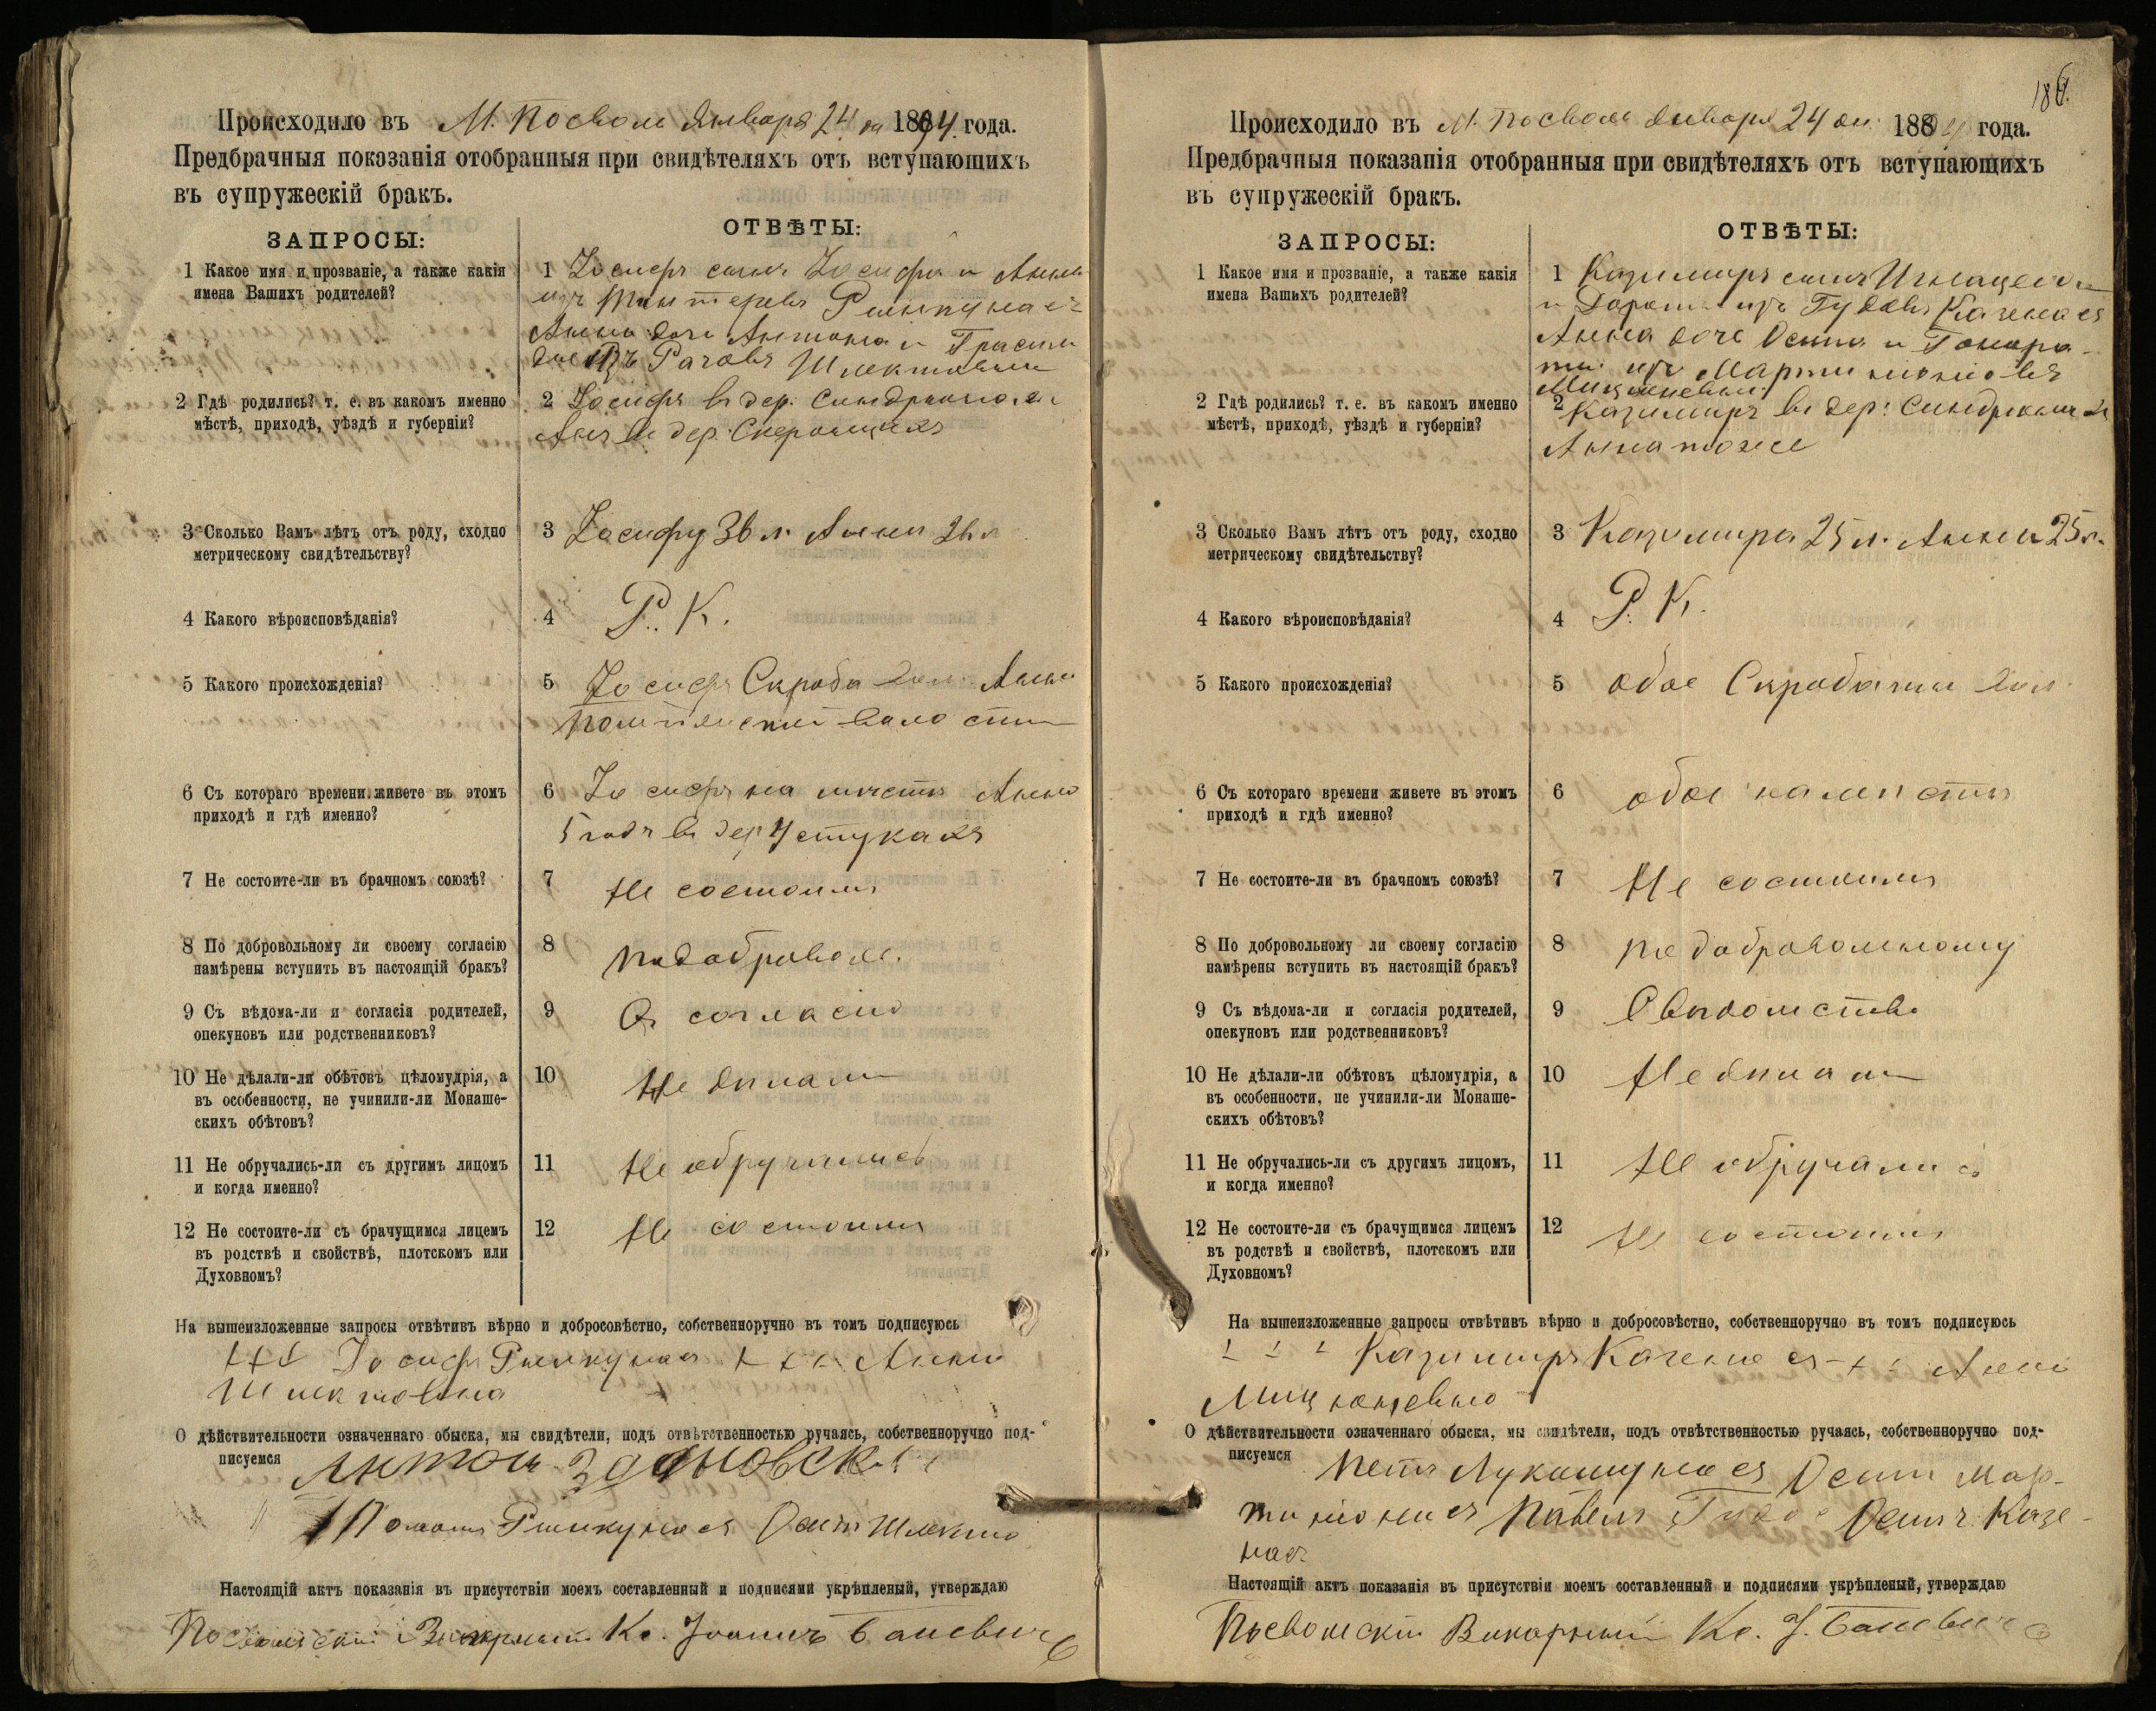 Происходило въ М. Посволь Января 24 дн 1894 года.
Предбрачныя показанія отобранныя при свидѣтеляхъ отъ вступающихъ
въ супружескій бракъ.
ЗАПРОСЫ:
ОТВѢТЫ:
1 Какое имя и прозваніе, а также какія
имена Вашихъ родителей?
1 Іосифъ сынъ Іосифа и Анны
изъ Рымкунасъ
Анна дочь Антона и
изъ
2 Гдѣ родились? т. е. въ какомъ именно
мѣстѣ, приходѣ, уѣздѣ и губерніи?
2 Іосифъ въ дер.
Анна въ дер.
3 Сколько Вамъ лѣтъ отъ роду, сходно
метрическому свидѣтельству?
3 Іосифу 36 л. Анне 26 л
4 Какого вѣроисповѣданія?
4 Р. К.
5 Какого происхожденія?
5 Іосифъ Скроба вол. Анна
волости
6 Съ котораго времени живете въ этомъ
приходѣ и гдѣ именно?
6 Іосифъ на мѣстѣ Анна
5 годъ въ дер Устукахъ
7 Не состоите-ли въ брачномъ союзѣ?
7 Не состоимъ
8 По добровольному ли своему согласію
намѣрены вступить въ настоящій бракъ?
8 По доброволь.
9 Съ вѣдома-ли и согласія родителей,
опекуновъ или родственниковъ?
9 Съ согласія
10 Не дѣлали-ли обѣтовъ цѣломудрія, а
въ особенности, не учинили-ли Монаше-
скихъ обѣтовъ?
10 Не дѣлали
11 Не обручались-ли съ другимъ лицомъ
и когда именно?
11 Не обручались
12 Не состоите-ли съ брачущимся лицемъ
въ родствѣ и свойствѣ, плотскомъ или
Духовномъ?
12 Не состоимъ
На вышеизложенные запросы отвѣтивъ вѣрно и добросовѣстно, собственноручно въ томъ подписуюсь
+++ Іосифъ Рымкунасъ +++ Анна
Шлектовна
О дѣйствительности означеннаго обыска, мы свидѣтели, подъ отвѣтственностью ручаясь, собственноручно под-
писуемся Антон
Рымкунасъ Осипъ Шлекто
Настоящій актъ показанія въ присутствіи моемъ составленный и подписями укрѣпленый, утверждаю
Посвольскій Викарный Кс. Іоаннъ Баневичъ
186
Происходило въ М. Посволь Января 24 дн 1894 года.
Предбрачныя показанія отобранныя при свидѣтеляхъ отъ вступающихъ
въ супружескій бракъ.
ЗАПРОСЫ:
ОТВѢТЫ:
1 Какое имя и прозваніе, а также какія
имена Вашихъ родителей?
1 Казимиръ сынъ Игнація
и изъ Гудовъ Каченасъ
Анна дочь Осипа и Гонора-
ты изъ Мартиноніовъ
2 Гдѣ родились? т. е. въ какомъ именно
мѣстѣ, приходѣ, уѣздѣ и губерніи?
2 Казимиръ въ дер:
Анна тоже
3 Сколько Вамъ лѣтъ отъ роду, сходно
метрическому свидѣтельству?
3 Казимира 25 л. Анна 25 л.
4 Какого вѣроисповѣданія?
4 Р. К.
5 Какого происхожденія?
5 обое Скроботы вол
6 Съ котораго времени живете въ этомъ
приходѣ и гдѣ именно?
6 обое на мѣстѣ
7 Не состоите-ли въ брачномъ союзѣ?
7 Не состоимъ
8 По добровольному ли своему согласію
намѣрены вступить въ настоящій бракъ?
8 по добровольному
9 Съ вѣдома-ли и согласія родителей,
опекуновъ или родственниковъ?
9
10 Не дѣлали-ли обѣтовъ цѣломудрія, а
въ особенности, не учинили-ли Монаше-
скихъ обѣтовъ?
10 Не дѣлали
11 Не обручались-ли съ другимъ лицомъ,
и когда именно?
11 Не обручались
12 Не состоите-ли съ брачущимся лицемъ
въ родствѣ и свойствѣ, плотскомъ или
Духовномъ?
12 Не состоимъ
На вышеизложенные запросы отвѣтивъ вѣрно и добросовѣстно, собственноручно въ томъ подписуюсь
+++ Казимиръ Каченасъ +++ Анна
О дѣйствительности означеннаго обыска, мы свидѣтели, подъ отвѣтственностью ручаясь, собственноручно под-
писуемся Петръ Лукошунасъ Осипъ Мар-
тиніонисъ Павелъ Осипъ Каче-
насъ
Настоящій актъ показанія въ присутствіи моемъ составленный и подписями укрѣпленый, утверждаю
Посвольскій Викарный Кс. І. Баневичъ